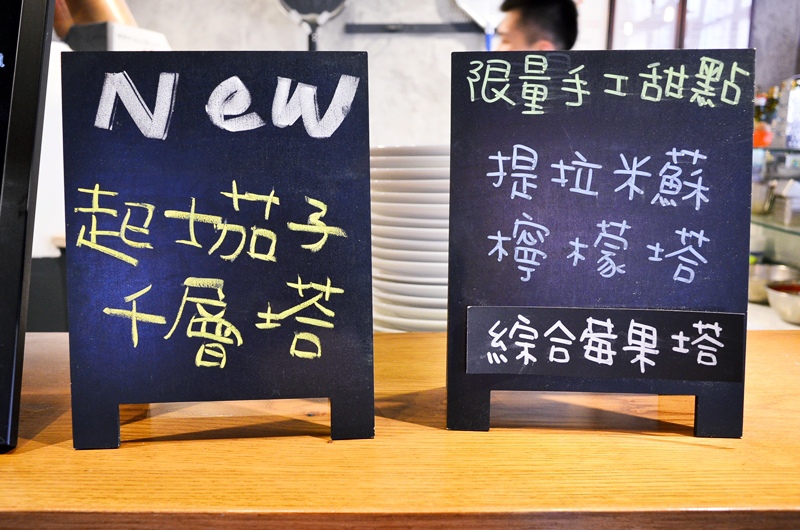 New
起士茄子
千層塔
限量手工甜點
提垃米蘇
檸檬塔
綜合莓果塔